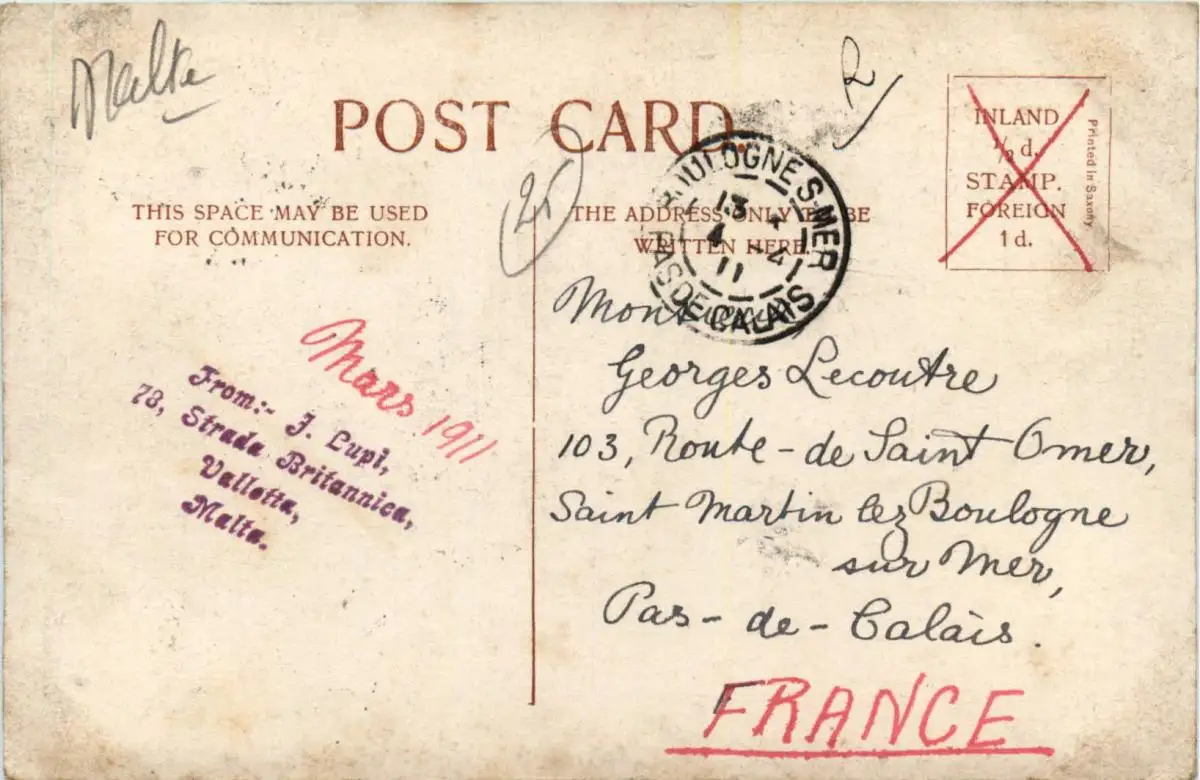 Malte
POST CARD.
INLAND
½ d.
STAMP.
FOREIGN
1 d.
Printed in Saxony
THIS SPACE MAY BE USED
FOR COMMUNICATION.
THE ADDRESS ONLY TO BE
WRITTEN HERE.
BOULOGNE S-MER
13
4
11
PAS DE CALAIS
Mars 1911
From:- J. Lupi,
73, Strada Britannica,
Valletta,
Malta.
Monsieur
Georges Lecoutre
103, Route-de Saint Omer,
Saint Martin lez Boulogne
sur Mer,
Pas-de-Calais.
FRANCE